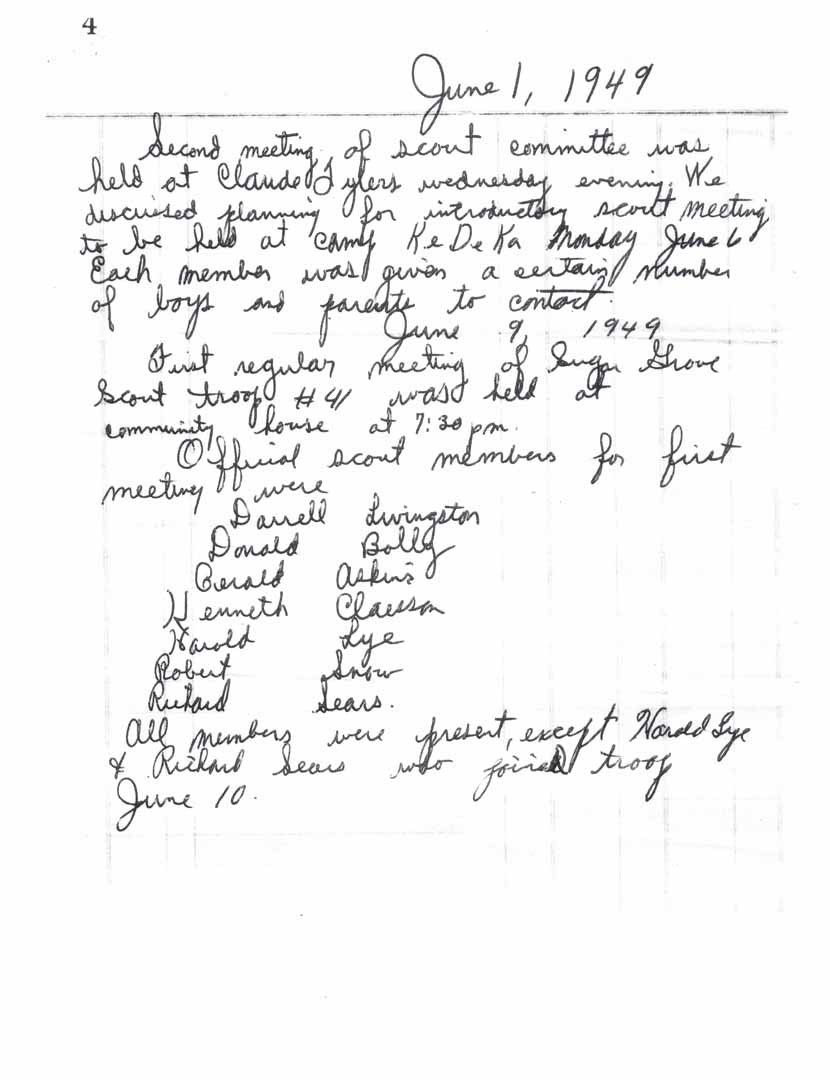 4
June 1, 1949
Second meeting of scout committee was
held at Claude Tylers wednesday evening. We
discussed planning for introductory scout meeting
to be held at camp Ke De Ka Monday June 6
Each member was given a certain number
of boys and parents to contact.
June 9, 1949
First regular meeting of Sugar Grove
Scout troop # 41 was held at
community house at 7:30 pm.
Official scout members for first
meeting were
Darrell Livingston
Donald Bolly
Gerald Askins
Kenneth Claesson
Harold Lye
Robert Snow
Richard Sears.
All members were present, except Harold Lye
& Richard Sears who joined troop
June 10.